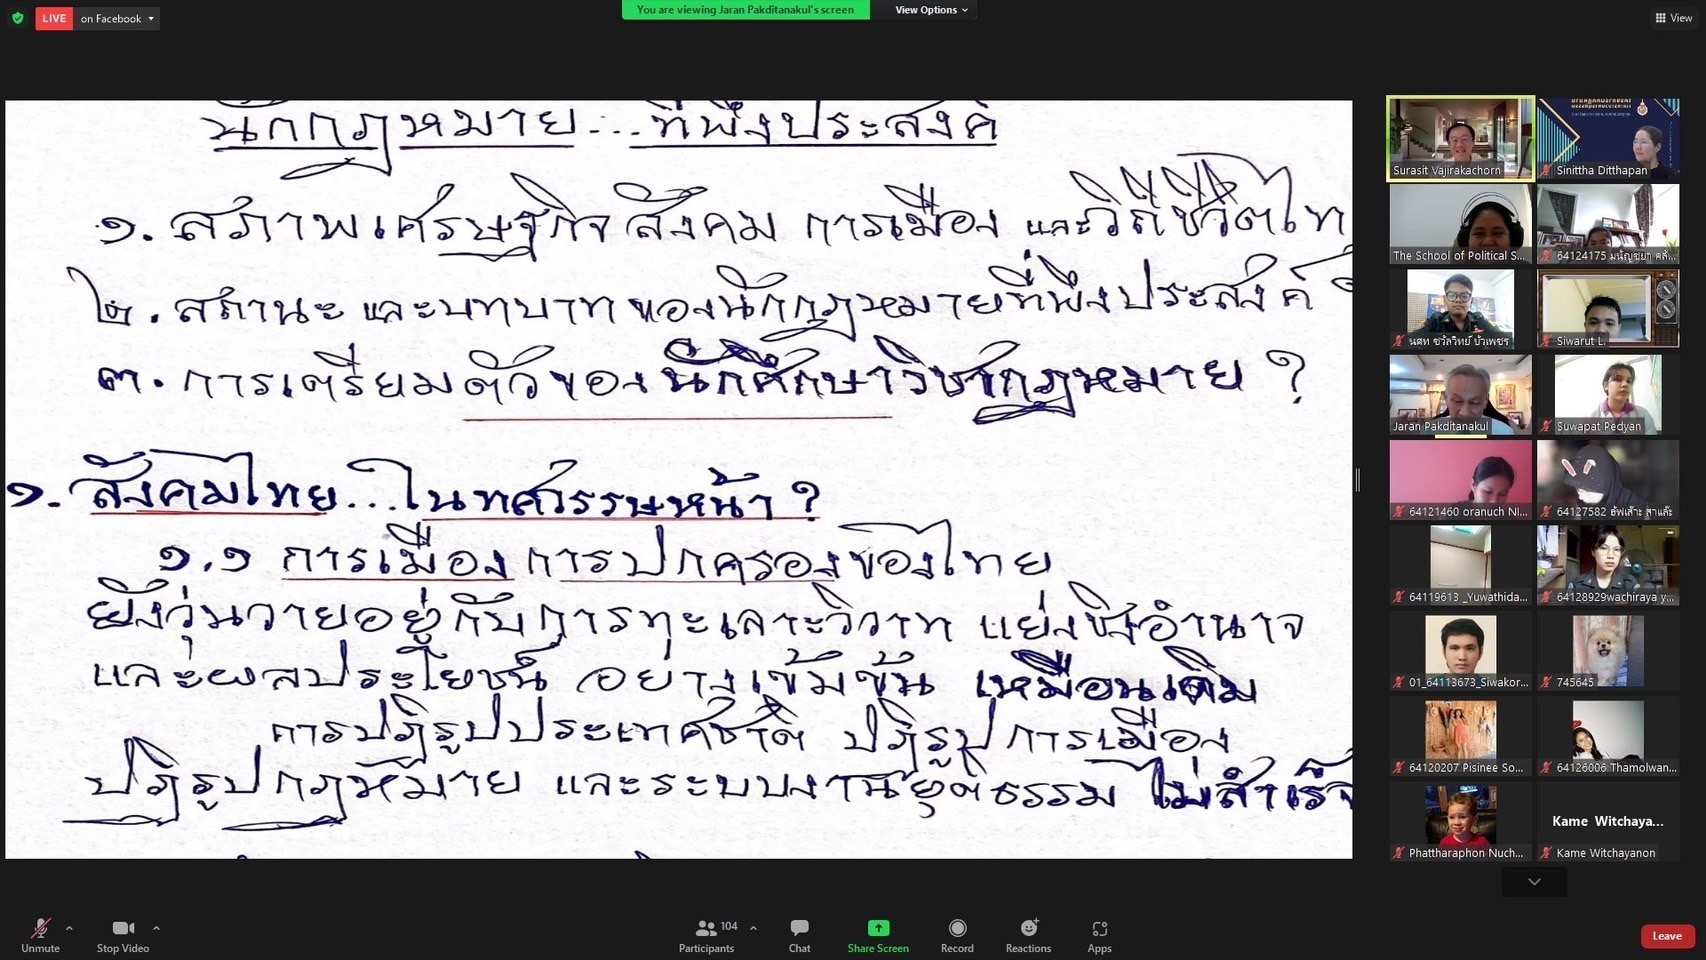 LIVE on Facebook
You are viewing Jaran Pakditanakul's screen
View Options
View
นักกฎหมาย...ที่พึงประสงค์
๑. สภาพเศรษฐกิจสังคม การเมือง และวิถีชีวิตไท
๒. สถานะ และบทบาทของนักกฎหมายที่พึงประสงค์
๓. การเตรียมตัวของนักศึกษาวิชากฎหมาย ?
๑. สังคมไทย...ในทศวรรษหน้า ?
๑.๑ การเมืองการปกครองของไทย
ยังวุ่นวายอยู่กับการทะเลาะวิวาท แย่งชิงอำนาจ
และผลประโยชน์ อย่างเข้มข้น เหมือนเดิม
การปฏิรูปประเทศชาติ ปฏิรูปการเมือง
ปฏิรูปกฎหมาย และระบบงานยุติธรรม ไม่สำเร็จ
Surasit Vajirakachorn
Sinittha Ditthapan
The School of Political S...
64124175 มนัญชยา
นศท ชวัลวิทย์ บัวเพชร
Siwarut L.
Jaran Pakditanakul
Suwapat Pedyan
64121460 oranuch NI...
64127582
64119613 _Yuwathida...
64128929wachiraya y...
01_64113673_Siwakor...
745645
64120207 Pisinee So...
64126006 Thamolwan...
Phattharaphon Nuch...
Kame Witchaya...
Kame Witchayanon
Unmute
Stop Video
104
Participants
Chat
Share Screen
Record
Reactions
Apps
Leave